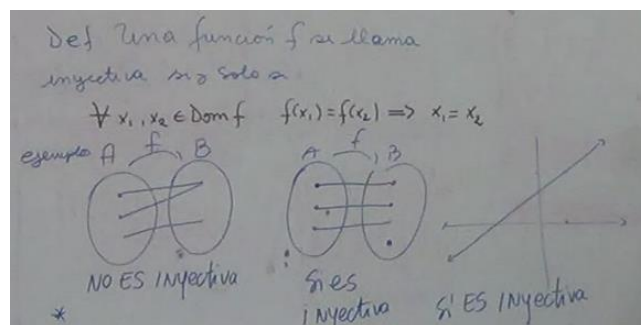 Def Una función f se llama
inyectiva si y solo si
∀ x₁, x₂ ∈ Dom f f(x₁) = f(x₂) ⟹ x₁ = x₂
ejemplo A f B A f B
NO ES INyectiva Si es SI ES INyectiva
INyectiva
*